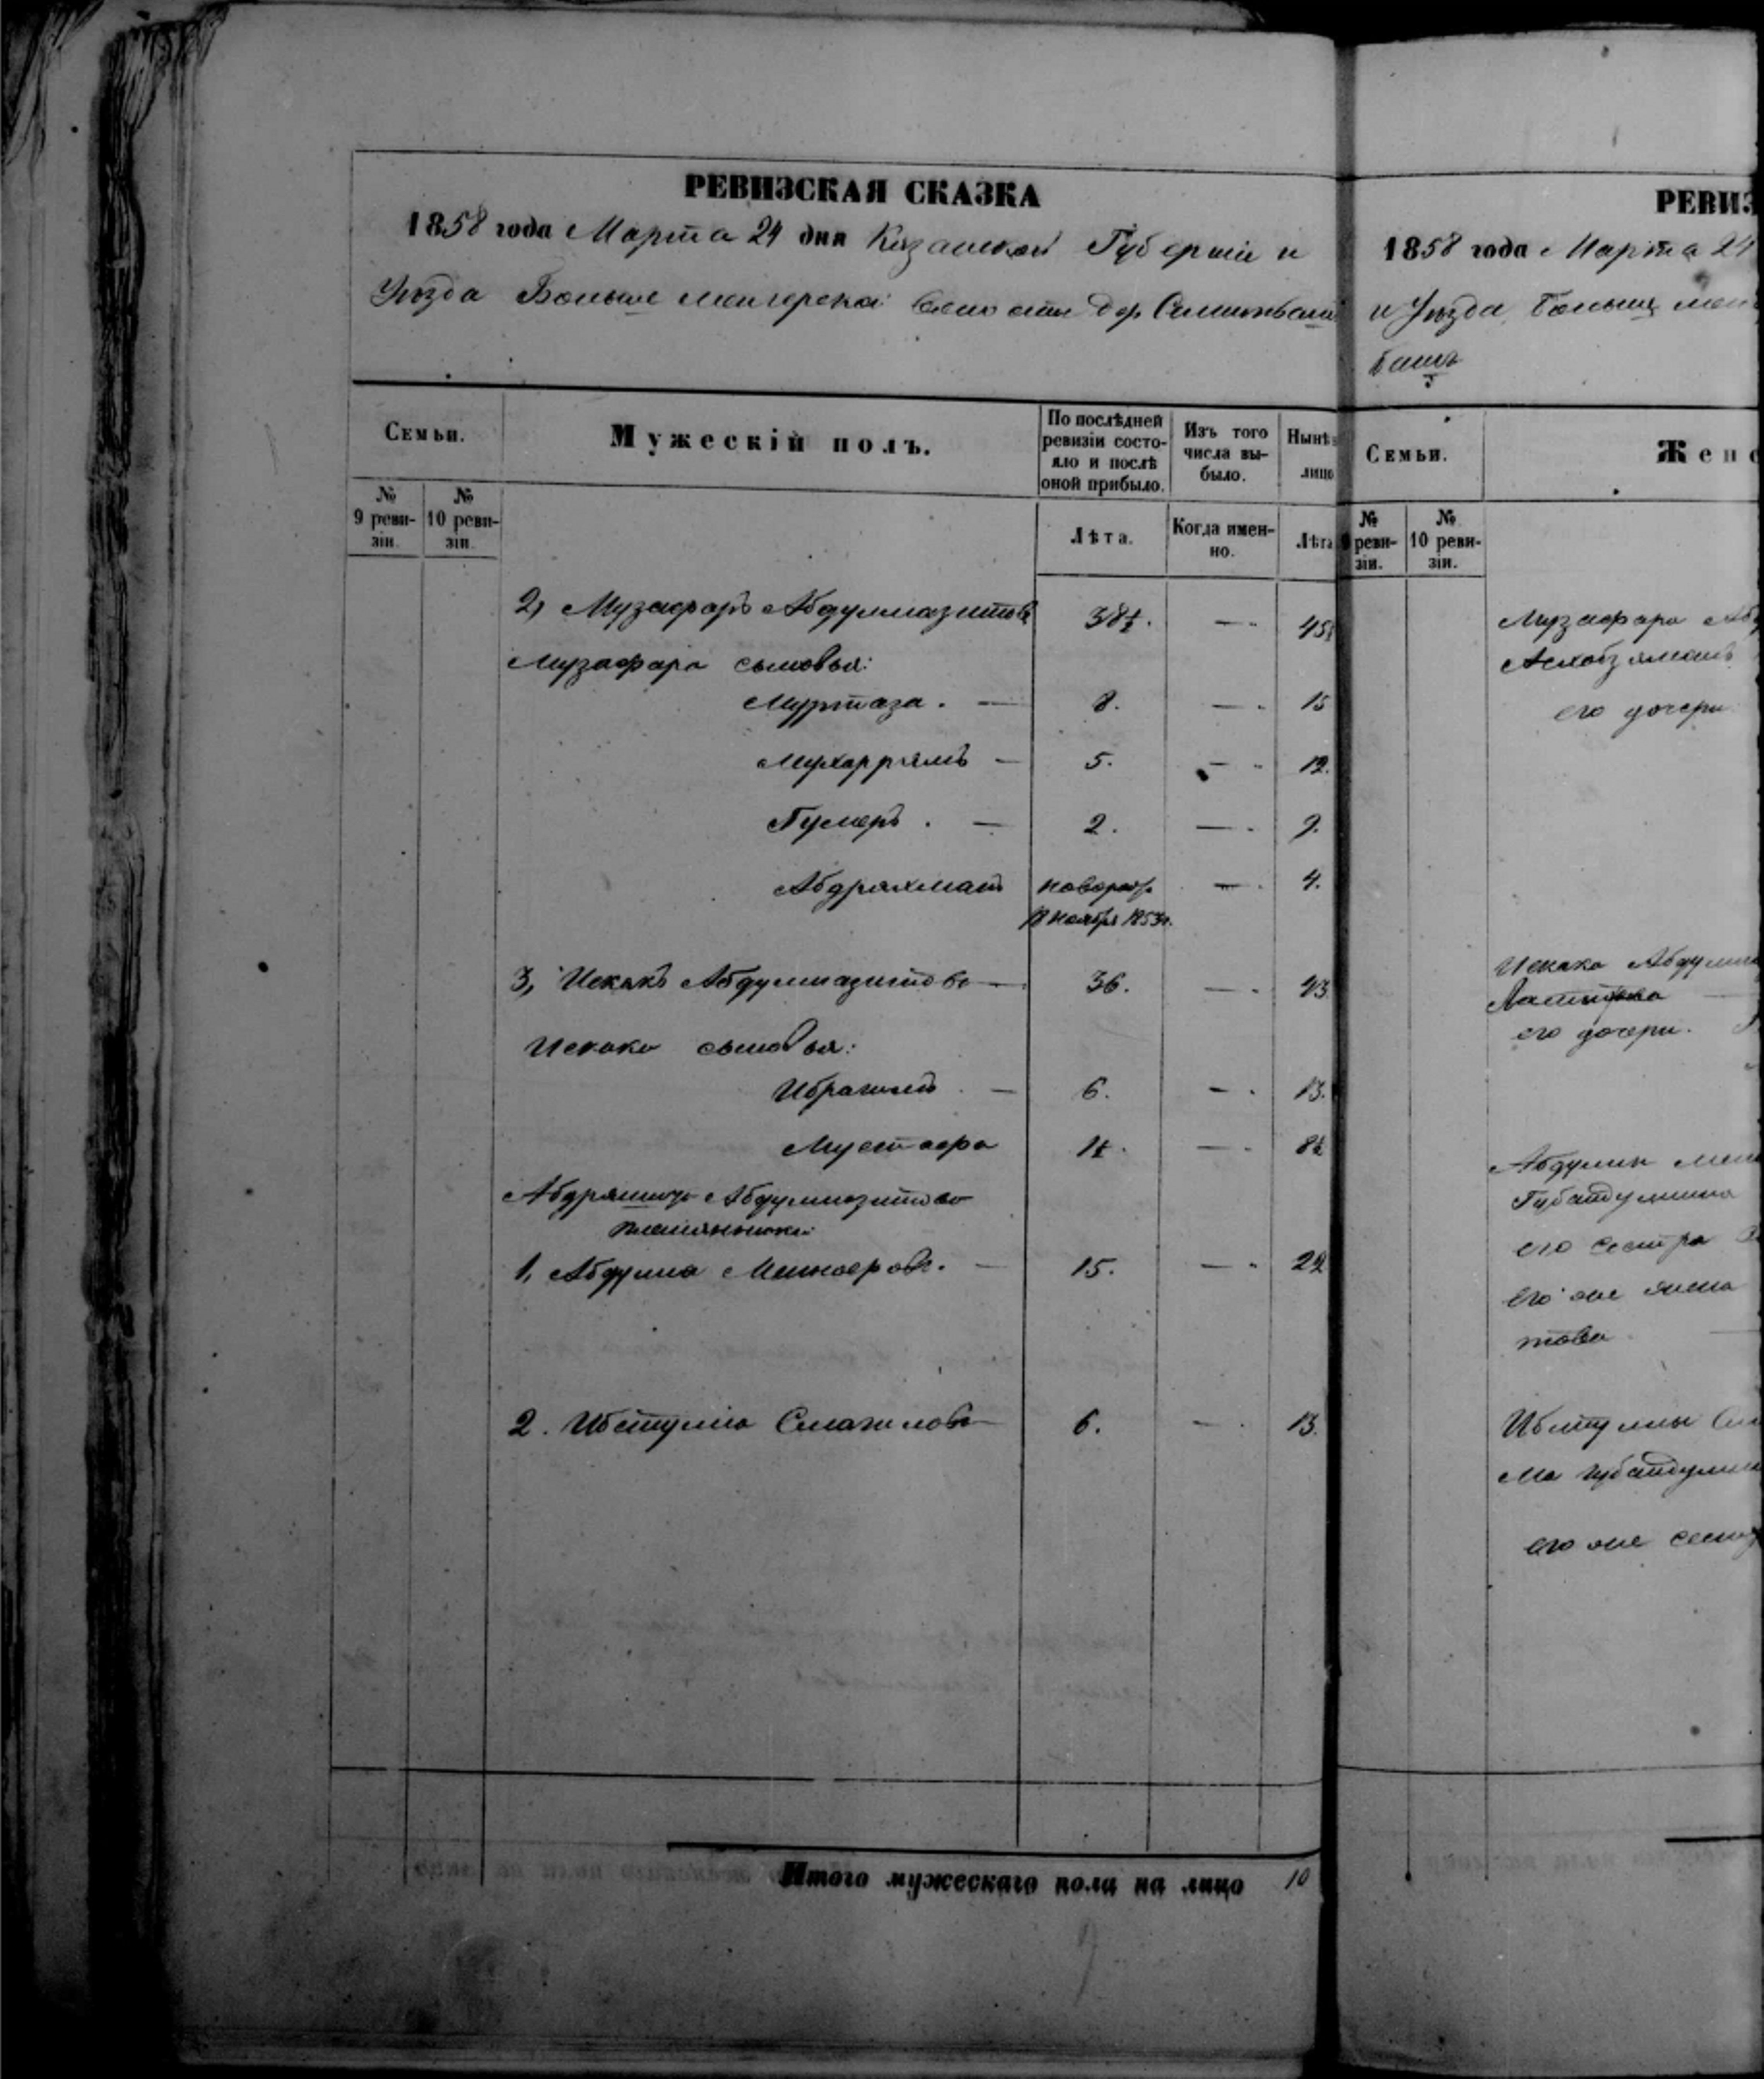 РЕВИЗСКАЯ СКАЗКА
1858 года Марта 24 дня Казанской Губерніи и
Уѣзда Больше менгерской Волости дер
Семьи.
Мужескій полъ.
По послѣдней ревизіи состо-
яло и послѣ
оной прибыло.
Изъ того
числа вы-
было.
Нынѣ
лицо
№ 9 реви-
зіи.
№ 10 реви-
зіи.
Лѣта.
Когда имен-
но.
Лѣта
2, Музафаръ Абдулмазитовъ 38½. — 45½
Музафара сыновья:
Муртаза. — 8. — 15
Мухаррямъ — 5. — 12.
Гумеръ. — 2. — 9.
Абдрахманъ новорож. — 4.
Ноября 1853г.
3, Искакъ Абдулмазитовъ — 36. — 43
Искака сыновья:
Ибрагимъ — 6. — 13.
Мустафа 1½. — 8½
Абдулмазитова
племянники:
1, Абдулла — 15. — 22
2. Смагиловъ 6. — 13.
Итого мужескаго пола на лицо 10
РЕВИЗ
1858 года Марта 24
и Уѣзда Больше мен
башъ
Семьи.
Женс
№ реви-
зіи.
№ 10 реви-
зіи.
Музафара Абд
его дочери
Искака Абдулма
его дочери.
Абдуллы
Губайдуллина
его сестра
его же жена
това
его же сест